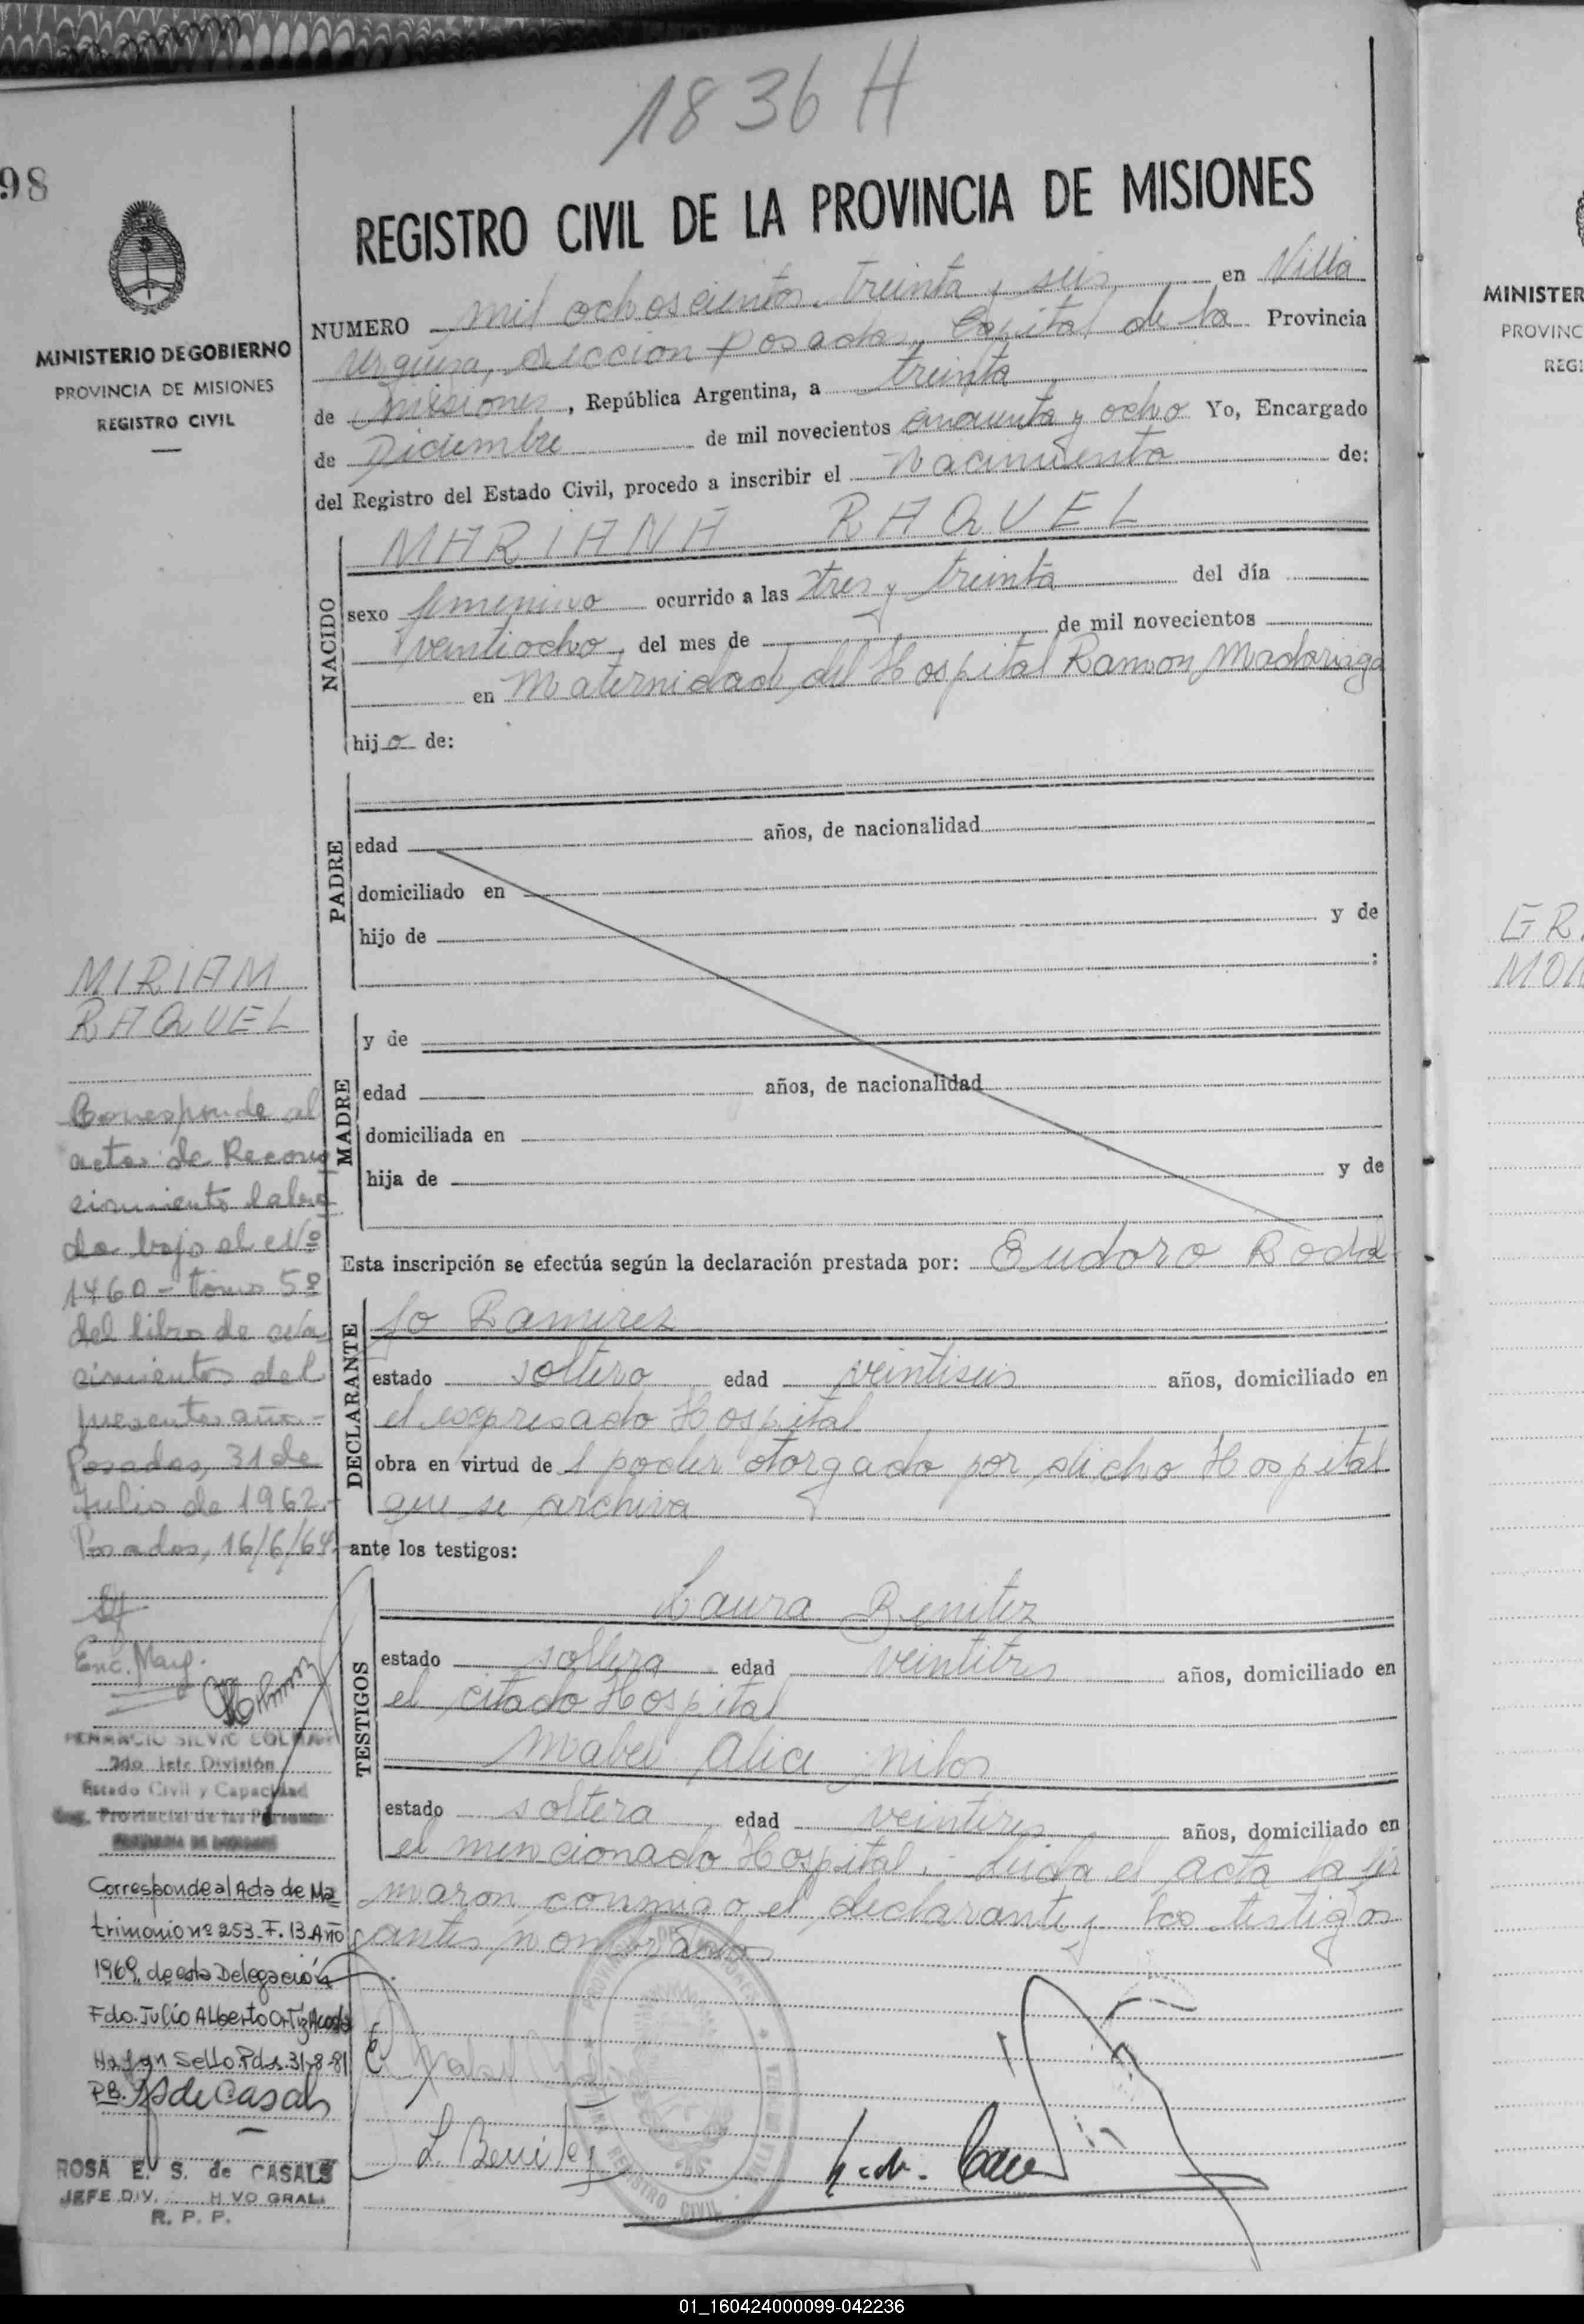 1836 H
98
REGISTRO CIVIL DE LA PROVINCIA DE MISIONES
MINISTERIO DE GOBIERNO
PROVINCIA DE MISIONES
REGISTRO CIVIL
NUMERO mil ochoscientos treinta y seis en Villa
Urquiza, sección Posadas, Capital de la Provincia
de Misiones, República Argentina, a treinta
de Diciembre de mil novecientos cincuenta y ocho Yo, Encargado
del Registro del Estado Civil, procedo a inscribir el Nacimiento de:
NACIDO
MARIANA RAQUEL
sexo femenino ocurrido a las tres y treinta del día
veintiocho, del mes de de mil novecientos
en Maternidad del Hospital Ramon Madariaga
hijo de:
PADRE
edad años, de nacionalidad
domiciliado en
hijo de y de
:
MADRE
y de
edad años, de nacionalidad
domiciliada en
hija de y de
Esta inscripción se efectúa según la declaración prestada por: Eudoro Rodol
DECLARANTE
fo Ramirez
estado soltero edad veintiseis años, domiciliado en
el expresado Hospital
obra en virtud de 1 poder otorgado por dicho Hospital
que se archiva
ante los testigos:
TESTIGOS
Laura Benitez
estado soltera edad veintitres años, domiciliado en
el citado Hospital
Mabel Alice
estado soltera edad años, domiciliado en
el mencionado Hospital.- Leida el acta la fir
maron conmigo el declarante y los testigos
antes nombrados
L. Benitez
MIRIAM
RAQUEL
Corresponde al
acta de Recono
cimiento labra
da bajo el Nº
1460 - tomo 5º
del libro de Na
cimientos del
presente año.-
Posadas, 31 de
Julio de 1962.-
Posadas, 16/6/64
Enc. May.
SILVIO
2do. Jefe División
Estado Civil y Capacidad
Provincial de las Personas
Corresponde al Acta de Ma
trimonio nº 253. F. 13 Año
1969, de esta Delegación
Fdo. Julio Alberto Ortiz Acosta
Hay un Sello. Pdas. 31-8-81
PB. ES de Casals
ROSA E. S. de CASALS
JEFE DIV. H VO GRAL.
R. P. P.
REGISTRO CIVIL
MINISTER
PROVINC
REGI
GR
MON
01_160424000099-042236